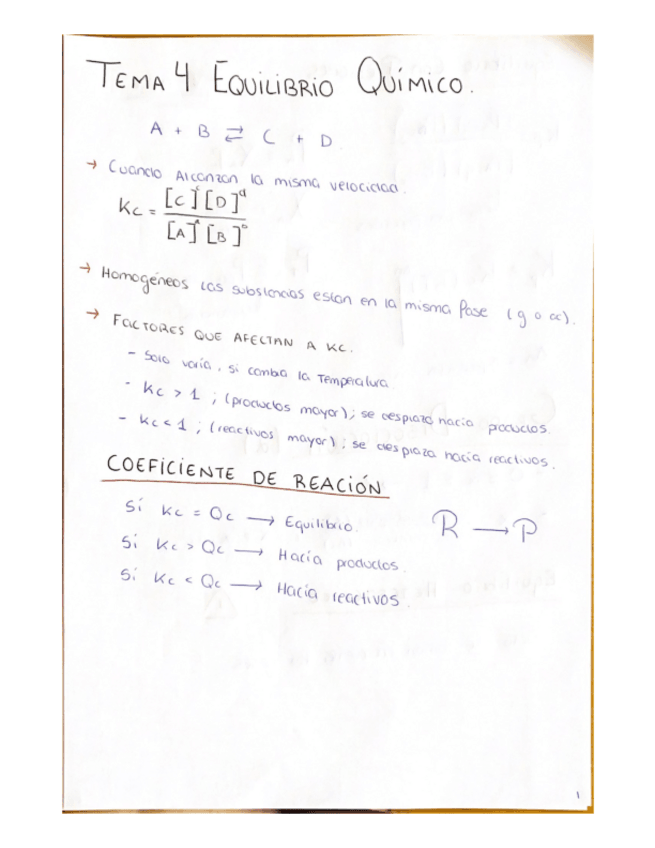 TEMA 4 EQUILIBRIO QUÍMICO.
A + B ⇄ C + D
→ Cuando Alcanzan la misma velocidad.
Kc = [C]^c [D]^d / [A]^a [B]^b
→ Homogéneos las substancias estan en la misma fase (g o ac).
→ FACTORES QUE AFECTAN A KC.
- Solo varía, si cambia la Temperatura.
- Kc > 1 ; (productos mayor); se desplaza hacia productos.
- Kc < 1 ; (reactivos mayor); se desplaza hacía reactivos.
COEFICIENTE DE REACIÓN
Sí Kc = Qc → Equilibrio.
R → P
Sí Kc > Qc → Hacía productos.
Sí Kc < Qc → Hacía reactivos.
1